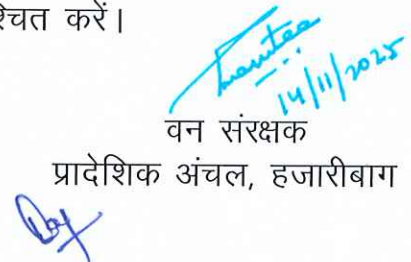 श्चित करें।
14/11/2025
वन संरक्षक
प्रादेशिक अंचल, हजारीबाग